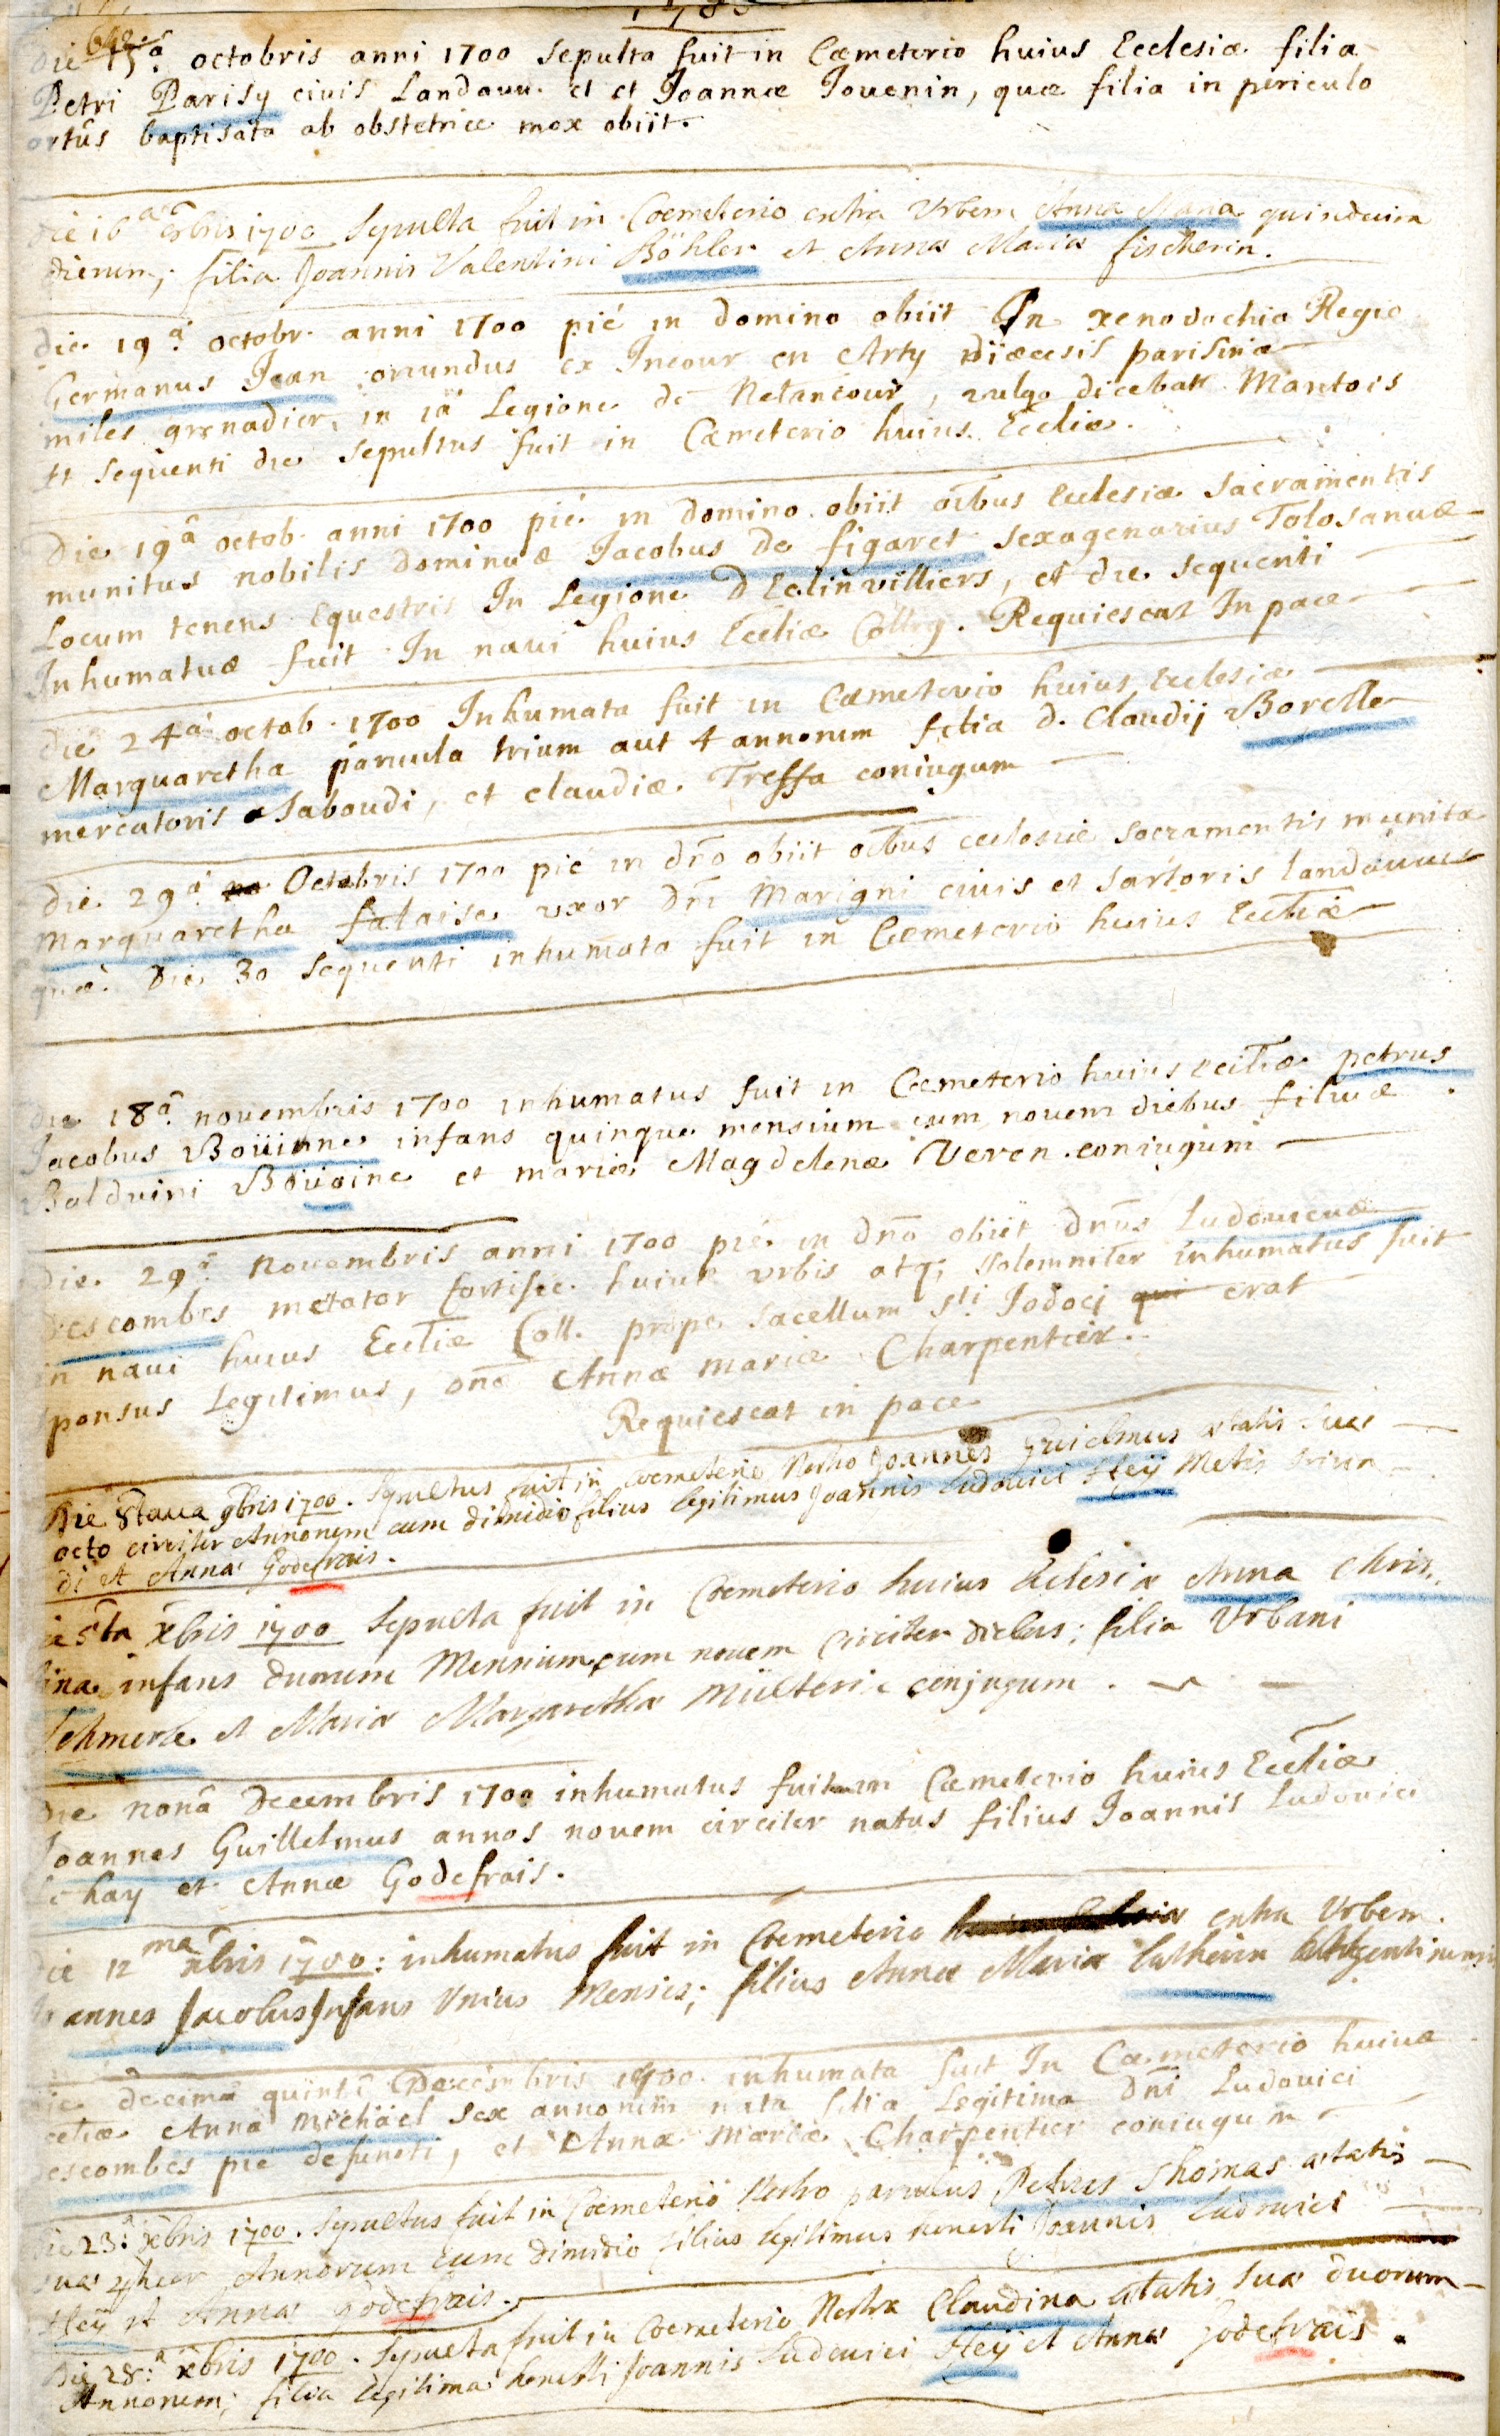 die 15ª octobris anni 1700 sepulta fuit in Cæmeterio huius Ecclesiæ filia
Petri Parisy ciuis Landauu. et et Joannæ Jouenin, quæ filia in periculo
ortûs baptisata ab obstetrice mox obiit.
die 16ª 8bris 1700 Sepulta fuit in Coemeterio extra Urbem Anna Maria quindecim
dierum, filia Joannis Valentini Böhler et Annæ Mariæ fischerin.
die 19ª octobr. anni 1700 pié in domino obiit In xenodochio Regio
Germanus Jean oriundus ex Incour en Arty diæcesis parisinæ
miles grenadier in 1ª Legione de Netancour, vulgo dicebatr Mantois
et sequenti die sepultus fuit in Cæmeterio huius Eccliæ.
Die 19ª octob. anni 1700 pié in domino obiit oibus Ecclesiæ Sacramentis
munitus nobilis dominus Jacobus De figaret sexagenarius Tolosanus
Locum tenens Equestris In Legione D Eclinvilliers, et die sequenti
Inhumatus fuit In naui huius Eccliæ Colleg. Requiescat In pace
die 24ª octob. 1700 Inhumata fuit in Cæmeterio huius Ecclesiæ
Marguaretha paruula trium aut 4 annorum filia d. Claudij Borelle
mercatoris Saboudi, et claudiæ Tressa coniugum
die 29ª Octobris 1700 pié in dno obiit oibus ecclesiæ sacramentis munita
Marguaretha falaise uxor dni Marigni ciuis et sartoris landauu
quæ Die 30 sequenti inhumata fuit in Cæmeterio huius Eccliæ
die 18ª nouembris 1700 inhumatus fuit in Cæmeterio huius eccliæ petrus
Jacobus Boüinne infans quinque mensium cum nouem diebus filius
Balduini Bouoine et mariæ Magdelenæ Veren coniugum
Die 29ª Nouembris anni 1700 pié in dno obiit dnus Ludouicus
Descombes metator fortific. huius urbis atq; solemniter inhumatus fuit
in naui huius Eccliæ Coll. prope sacellum sti Jodoci qui erat
sponsus Legitimus, Annæ mariæ Charpentier.
Requiescat in pace
Die 8taua 9bris 1700. Sepultus fuit in Coemeterio Nostro Joannes Guielmus ætatis suæ
octo circiter Annorum cum dimidio filius legitimus Joannis Ludouici Heÿ Metis oriun
di et Annæ Godefrais.
die 5ta xbris 1700 Sepulta fuit in Coemeterio huius Ecclesiæ Anna Chris-
tina infans duorum Mensium cum novem circiter diebus; filia Urbani
Schmerle et Mariæ Margarethæ Mülleri conjugum.
Die nonâ Decembris 1700 inhumatus fuit in Cæmeterio huius Eccliæ
Joannes Guillelmus annos nouem circiter natus filius Joannis Ludouici
Le hay et Annæ Godefrais.
die 12ma xbris 1700: inhumatus fuit in Coemeterio extra Urbem.
Joannes Jacobus Infans Unius Mensis; filius Annæ Mariæ Argentinensis
die decima quintâ Decembris 1700 inhumata fuit In Cæmeterio huius
eccliæ Anna Michäel sex annorum nata filia Legitima Dni Ludouici
descombes pié defuncti, et Annæ Mariæ Charpentier coniugum
Die 23ª xbris 1700. Sepultus fuit in Coemeterio Nostro parvulus Petrus Thomas ætatis
suæ Annorum cum dimidio filius legitimus honesti Joannis Ludovici
Heÿ et Annæ godefrais.
Die 28ª xbris 1700. Sepulta fuit in Coemeterio Nostro Claudina ætatis suæ duorum
Annorum; filia legitima honesti Joannis Ludouici Heÿ et Annæ godefrais.